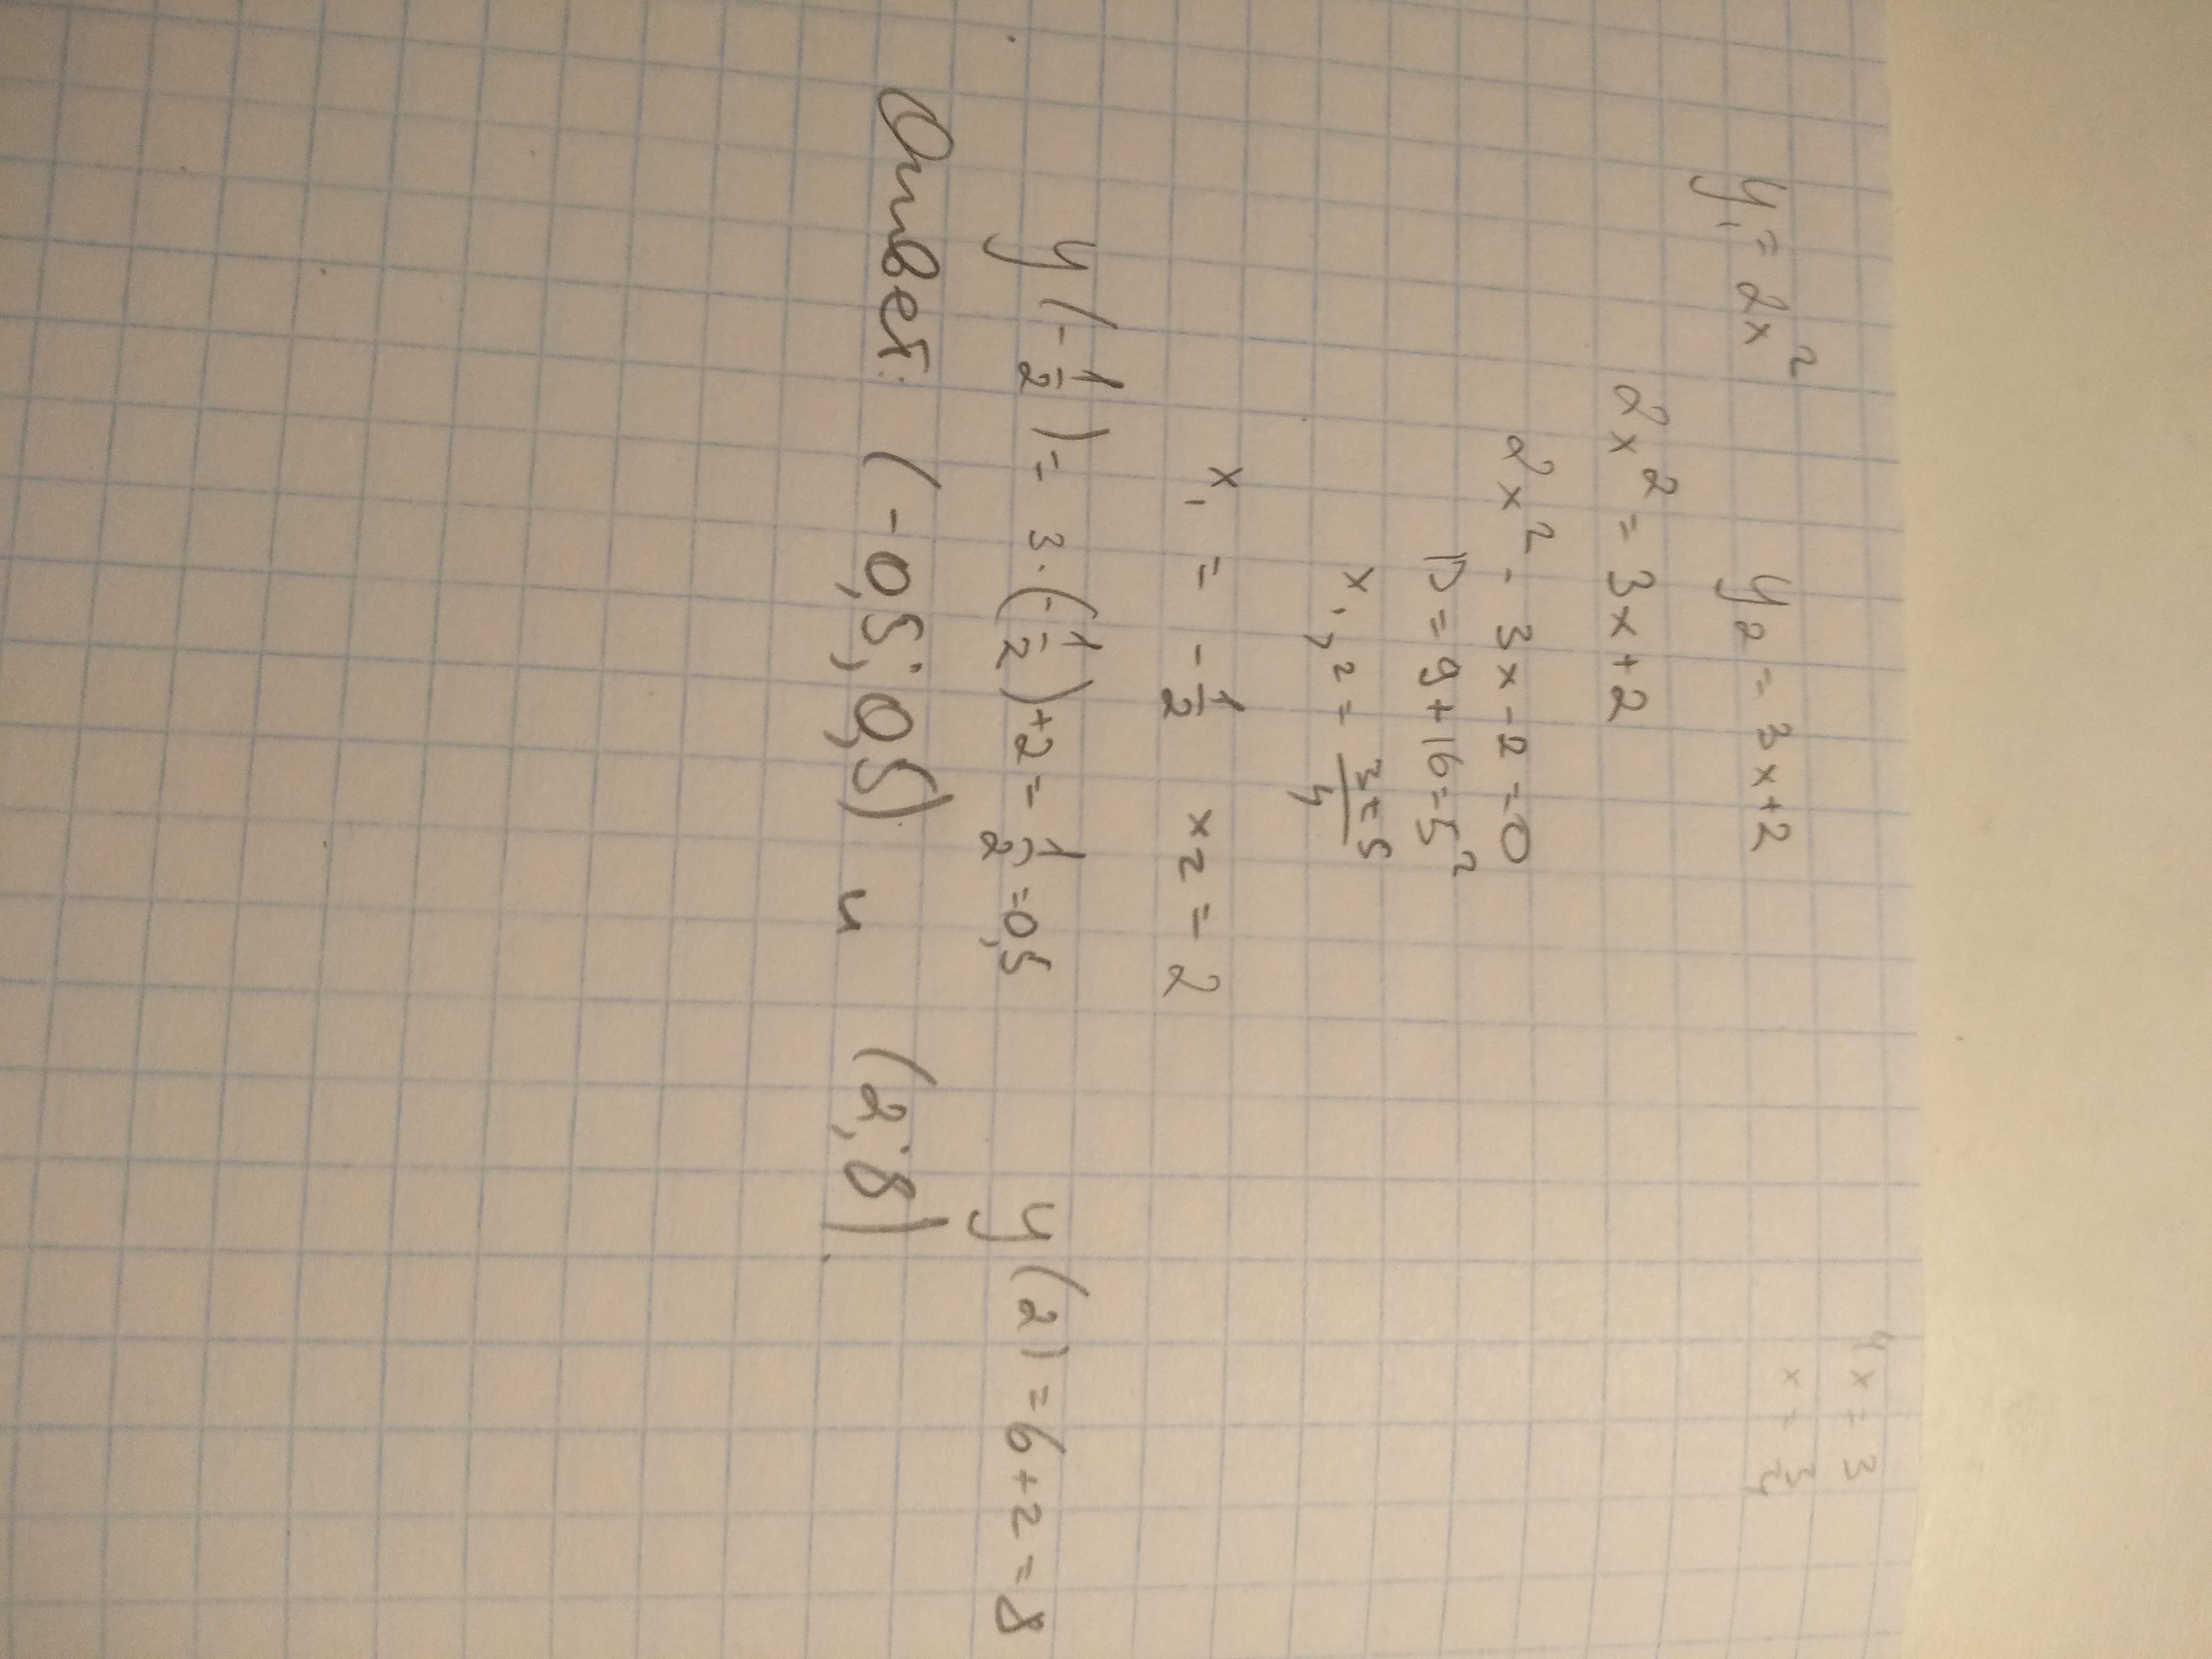 4x = 3
x = 3/4
y₁ = 2x² y₂ = 3x+2
2x² = 3x+2
2x² - 3x - 2 = 0
D = 9+16 = 5²
x₁,₂ = (3±5)/4
x₁ = -1/2 x₂ = 2
y(-1/2) = 3·(-1/2)+2 = 1/2 = 0,5 y(2) = 6+2 = 8
Ответ: (-0,5; 0,5) и (2; 8).